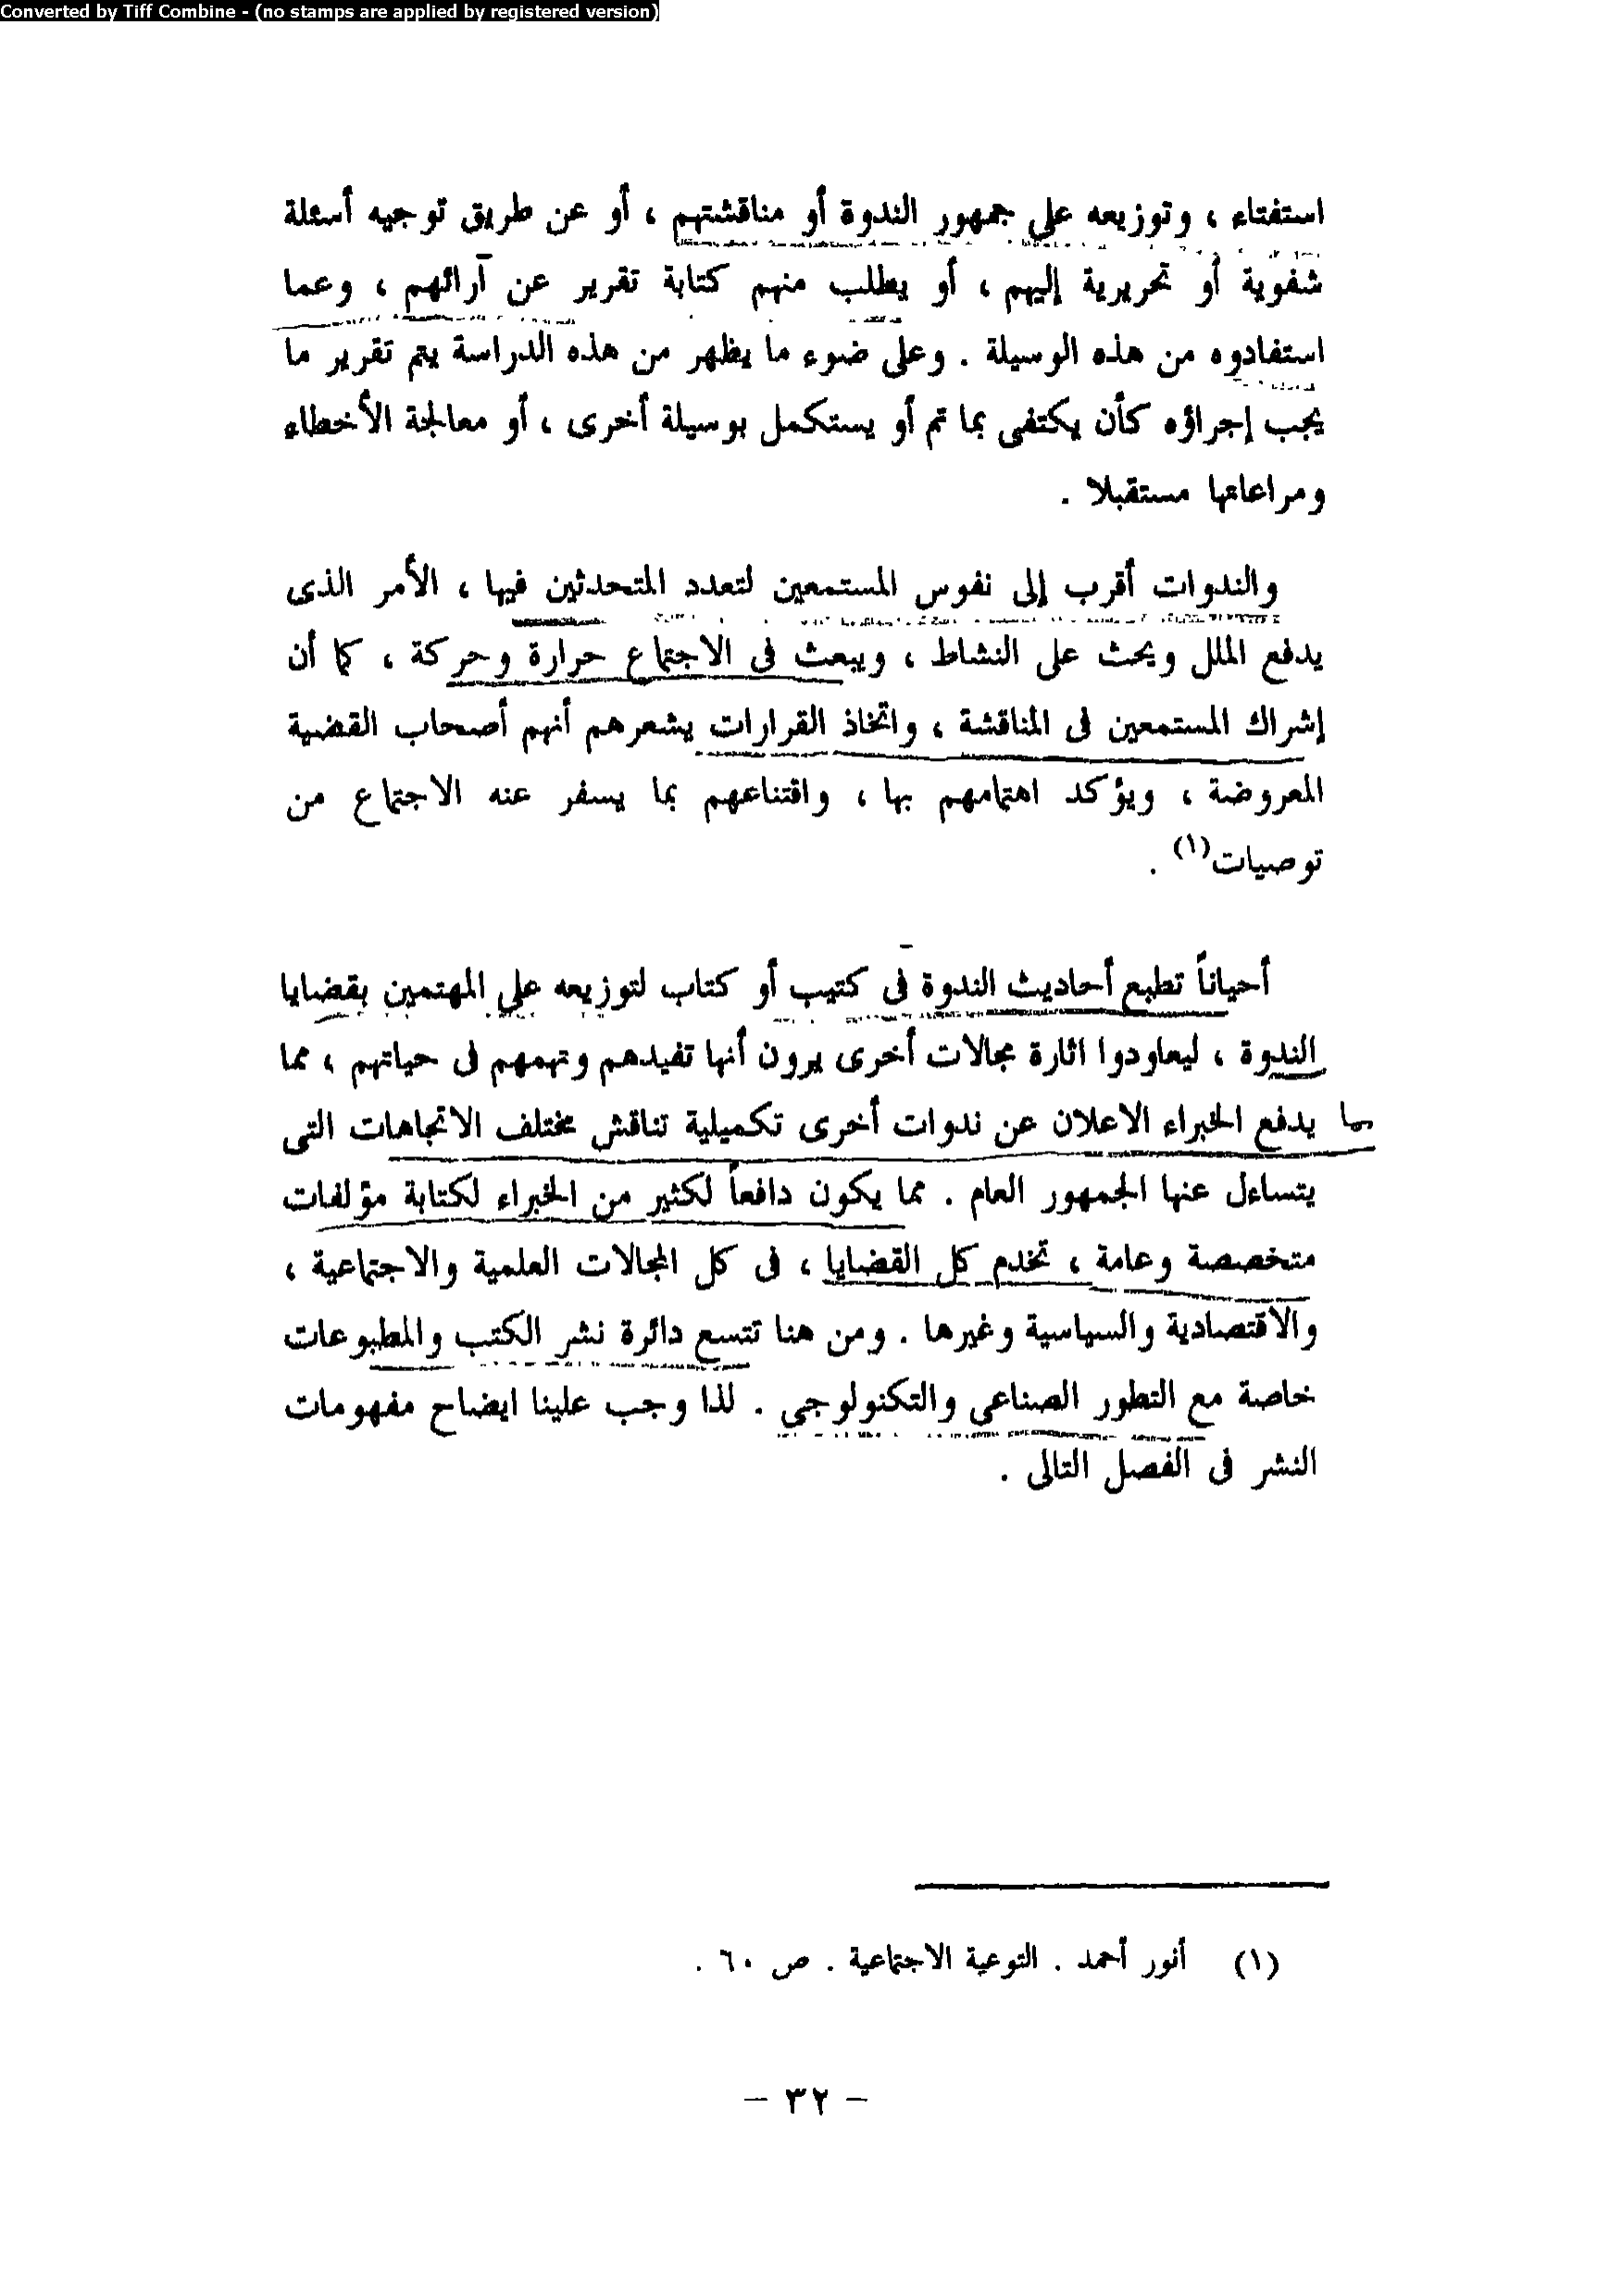 Converted by Tiff Combine - (no stamps are applied by registered version)
استفتاء ، وتوزيعه على جمهور الندوة أو مناقشتهم ، أو عن طريق توجيه أسئلة
شفوية أو تحريرية إليهم ، أو يطلب منهم كتابة تقرير عن آرائهم ، وعما
استفادوه من هذه الوسيلة . وعلى ضوء ما يظهر من هذه الدراسة يتم تقرير ما
يجب إجراؤه كأن يكتفى بما تم أو يستكمل بوسيلة أخرى ، أو معالجة الأخطاء
ومراعاتها مستقبلا .
والندوات أقرب إلى نفوس المستمعين لتعدد المتحدثين فيها ، الأمر الذى
يدفع الملل ويحث على النشاط ، ويبعث فى الاجتماع حرارة وحركة ، كما أن
إشراك المستمعين فى المناقشة ، واتخاذ القرارات يشعرهم أنهم أصحاب القضية
المعروضة ، ويؤكد اهتمامهم بها ، واقتناعهم بما يسفر عنه الاجتماع من
توصيات(١) .
أحياناً تطبع أحاديث الندوة فى كتيب أو كتاب لتوزيعه على المهتمين بقضايا
الندوة ، ليعاودوا اثارة مجالات أخرى يرون أنها تفيدهم وتهمهم فى حياتهم ، مما
يدفع الخبراء الاعلان عن ندوات أخرى تكميلية تناقش مختلف الاتجاهات التى
يتساءل عنها الجمهور العام . مما يكون دافعاً لكثير من الخبراء لكتابة مؤلفات
متخصصة وعامة ، تخدم كل القضايا ، فى كل المجالات العلمية والاجتماعية ،
والاقتصادية والسياسية وغيرها . ومن هنا تتسع دائرة نشر الكتب والمطبوعات
خاصة مع التطور الصناعى والتكنولوجى . لذا وجب علينا ايضاح مفهومات
النشر فى الفصل التالى .
(١) أنور أحمد . التوعية الاجتماعية . ص ٦٠ .
- ٣٢ -